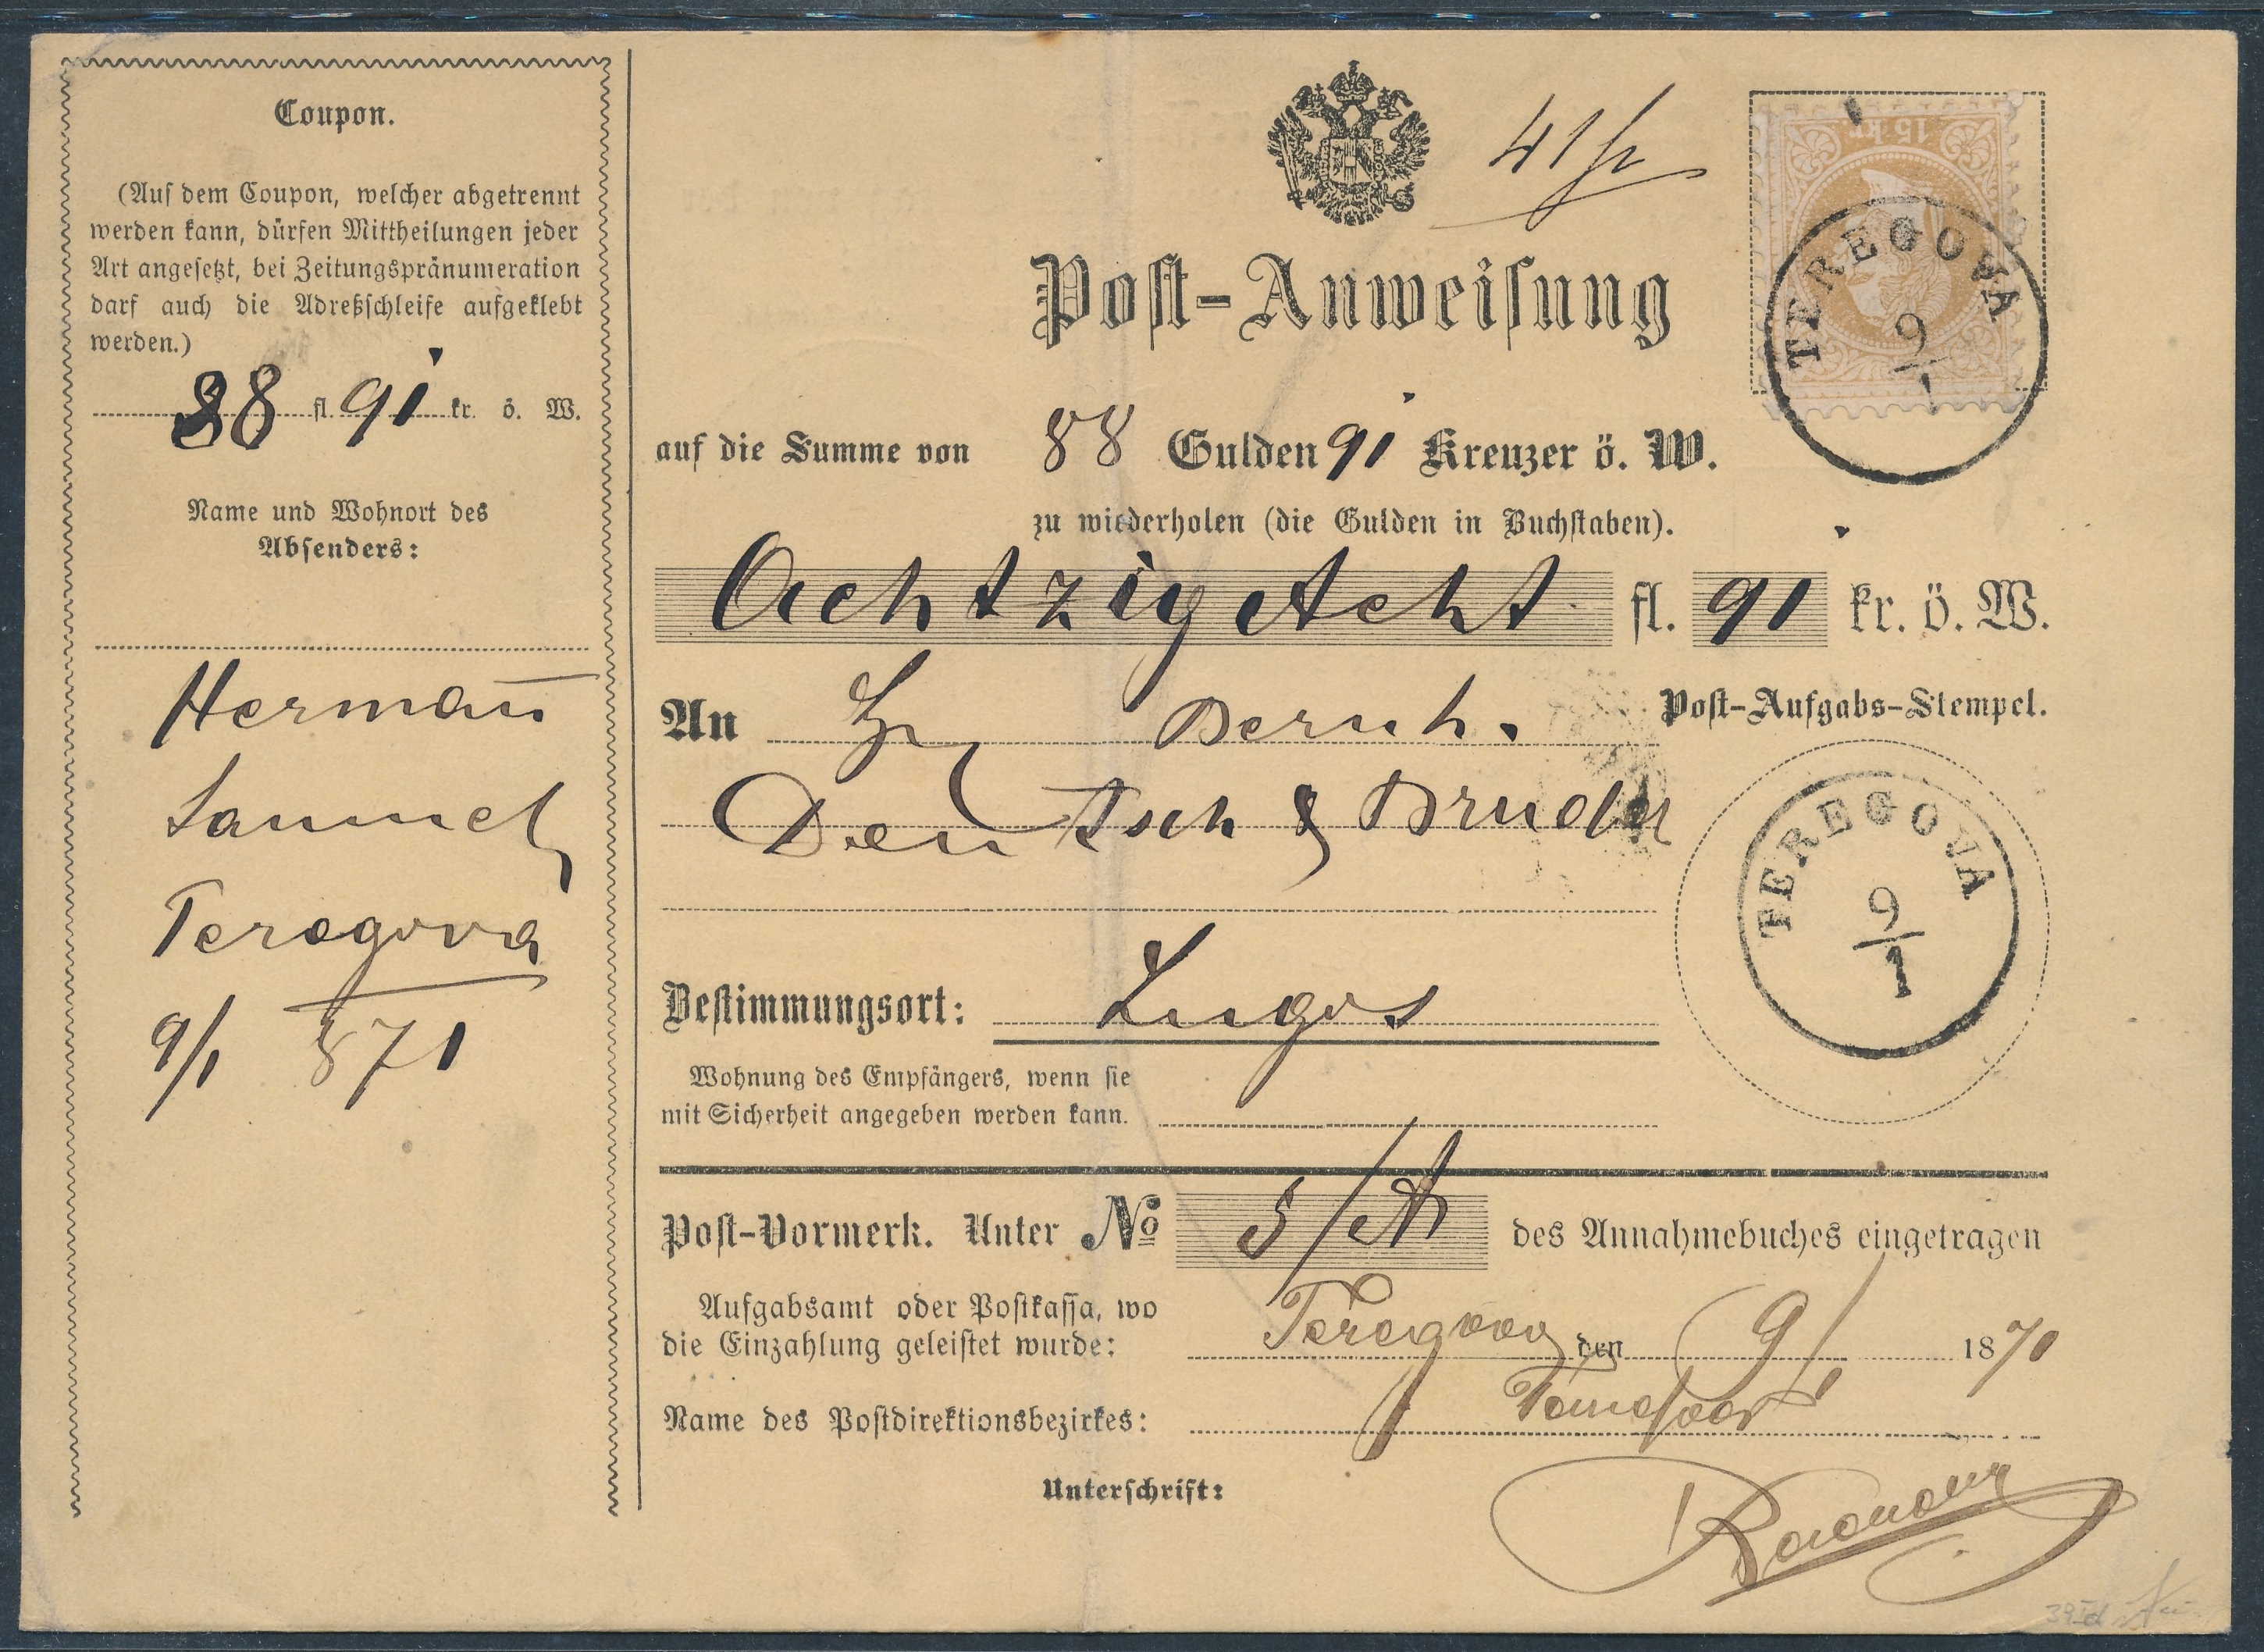 Coupon.
(Auf dem Coupon, welcher abgetrennt
werden kann, dürfen Mittheilungen jeder
Art angesetzt, bei Zeitungspränumeration
darf auch die Adreßschleife aufgeklebt
werden.)
88 fl. 91 kr. ö. W.
Name und Wohnort des
Absenders:
Herman̄
Samuel
Teregova
9/1 871
41
15 kr.
TEREGOVA
9/1
Post-Anweisung
auf die Summe von 88 Gulden 91 Kreuzer ö. W.
zu wiederholen (die Gulden in Buchstaben).
Achtzig Acht fl. 91 kr. ö. W.
An Bernh.
Deutsch & Bruder
Post-Aufgabs-Stempel.
TEREGOVA
9/1
Bestimmungsort: Lugos
Wohnung des Empfängers, wenn sie
mit Sicherheit angegeben werden kann.
Post-Vormerk. Unter No des Annahmebuches eingetragen
Aufgabsamt oder Postkassa, wo
die Einzahlung geleistet wurde: Teregova den 9/1 1870
Name des Postdirektionsbezirkes: Temesvar
Unterschrift: